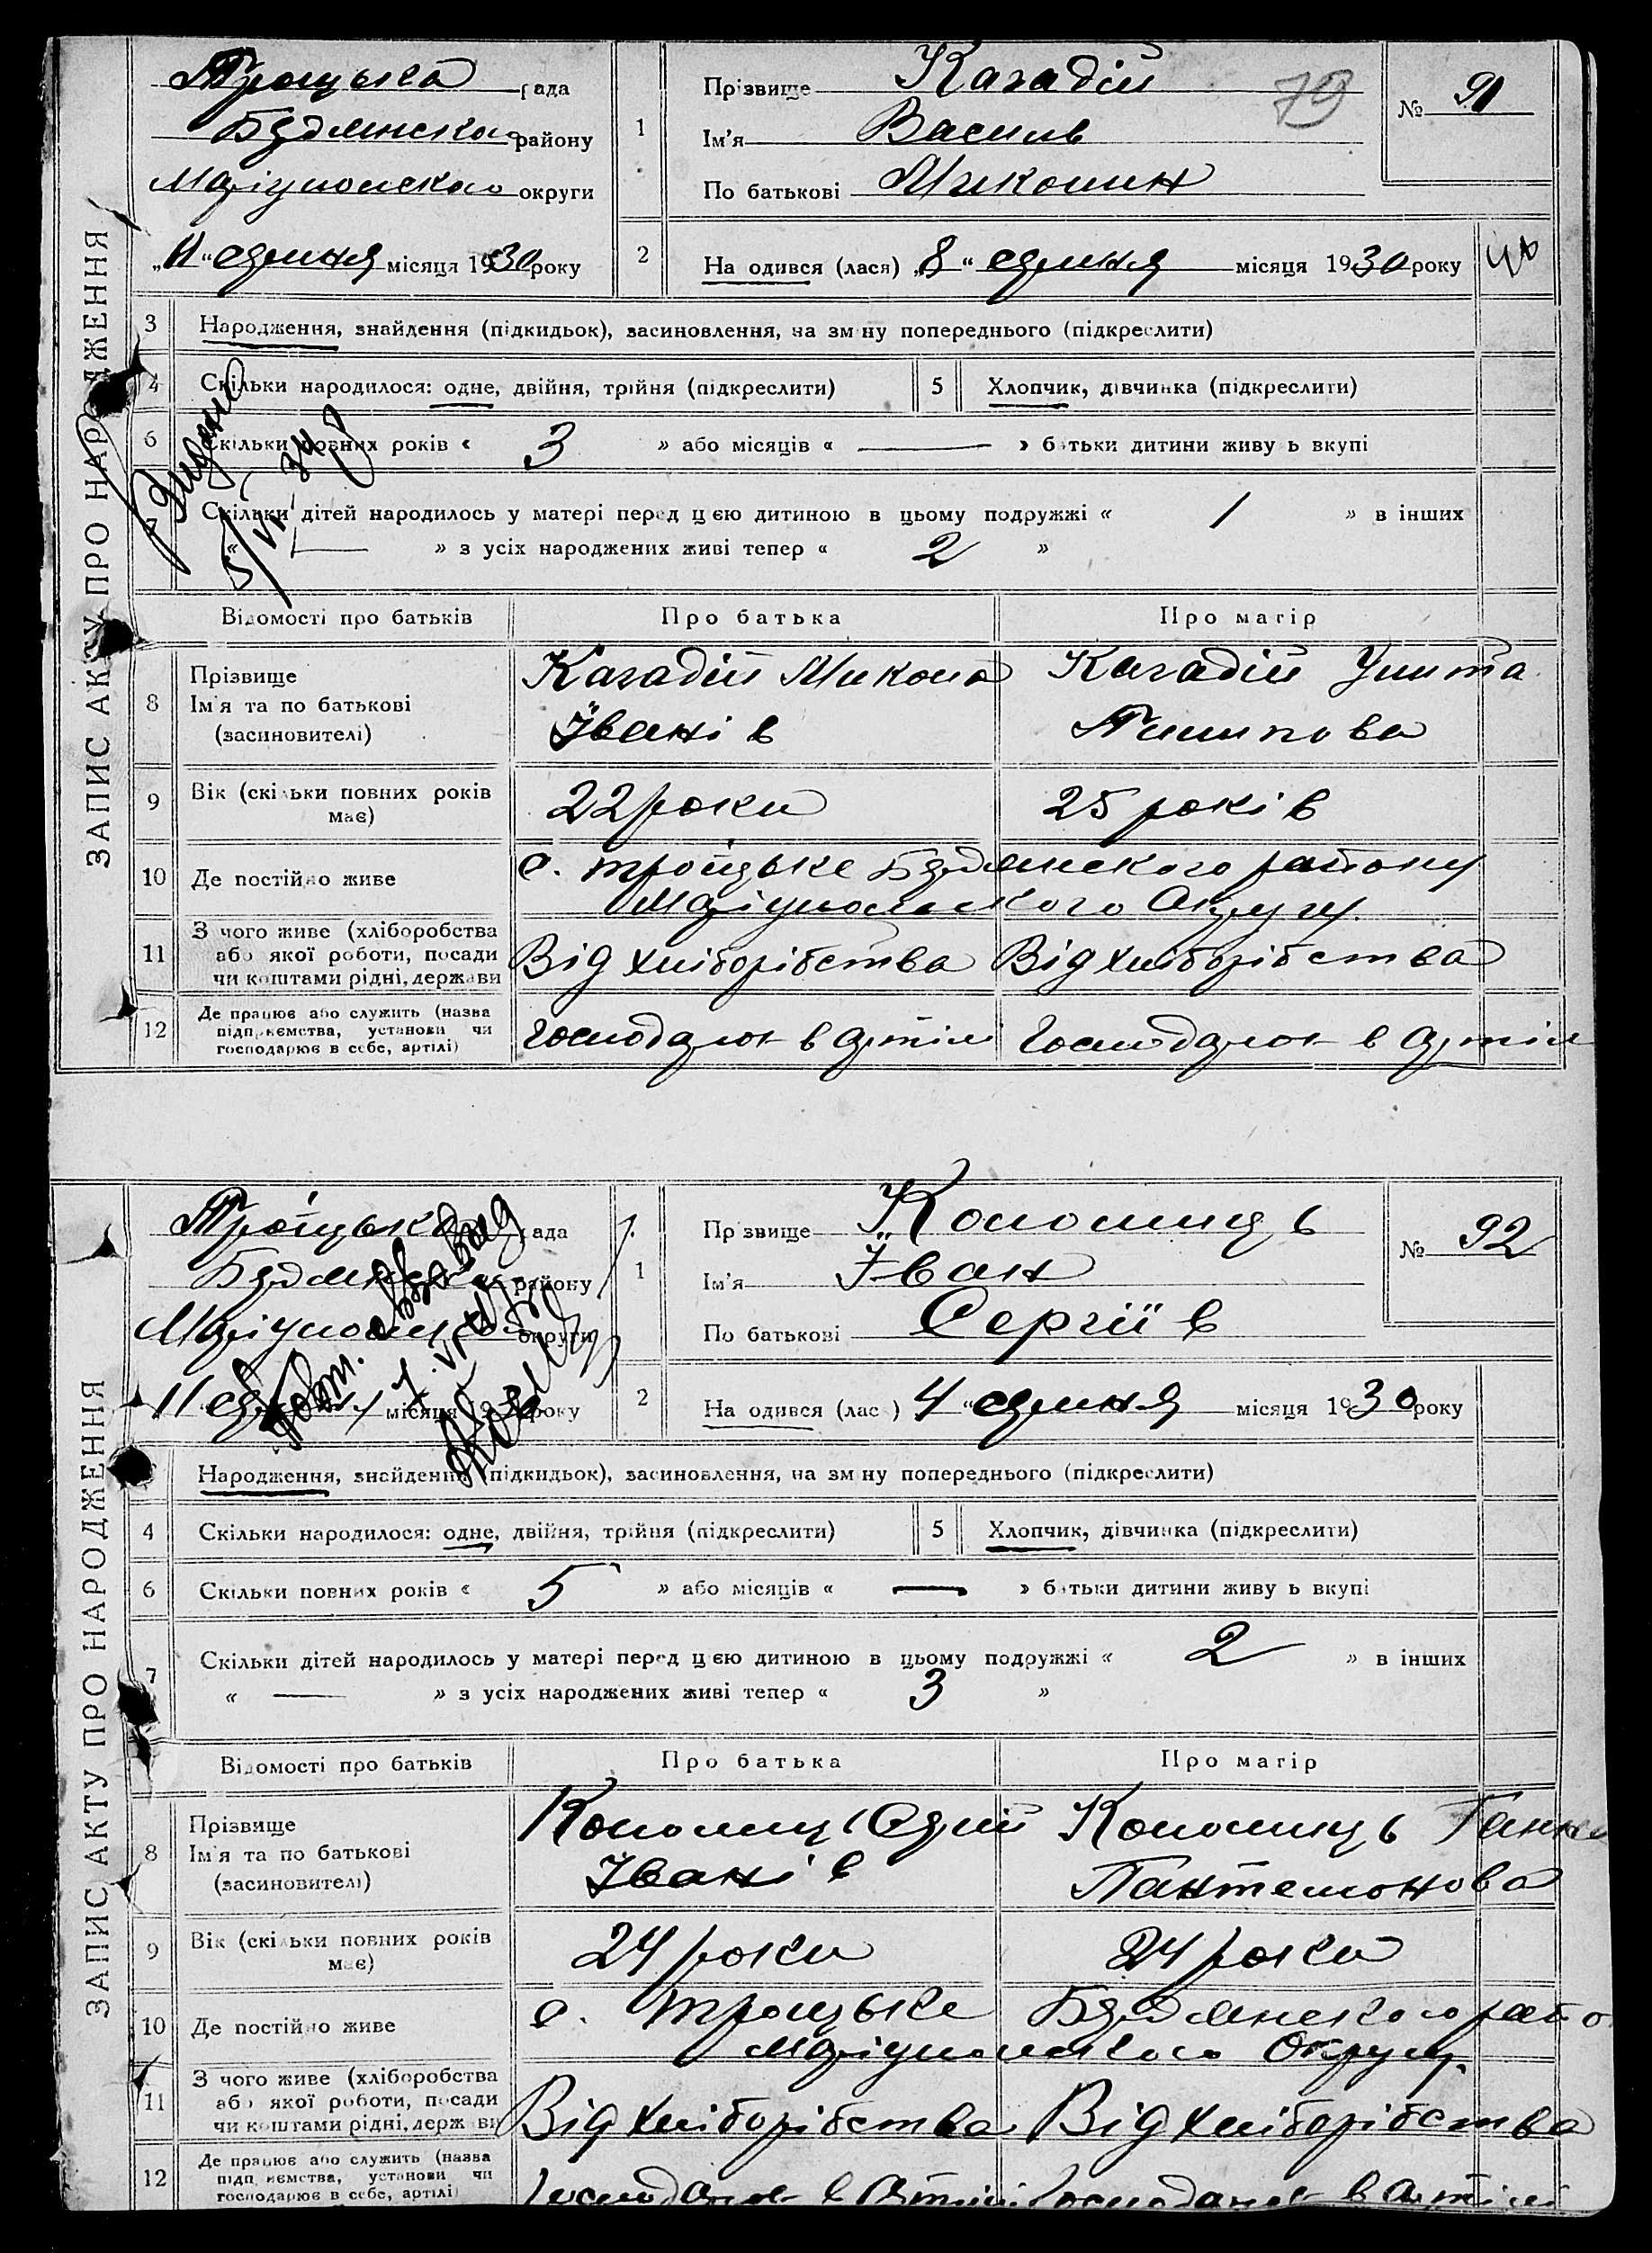 ЗАПИС АКТУ ПРО НАРОДЖЕННЯ
Троцька рада
Бердянского району
Маріупольского округи
„11“ серпня місяця 1930 року
1
Прізвище Карадій
Ім'я Василь
По батькові Миколин
79
№ 91
2
На одився (лася) „8“ серпня місяця 1930 року
3 Народження, знайдення (підкидьок), засиновлення, на зм ну попереднього (підкреслити)
4 Скільки народилося: одне, двійня, трійня (підкреслити)
5 Хлопчик, дівчинка (підкреслити)
6 Скільки повних років « 3 » або місяців « — » батьки дитини живу ь вкупі
Скільки дітей народилось у матері перед ц єю дитиною в цьому подружжі « 1 » в інших
« — » з усіх народжених живі тепер « 2 »
Відомості про батьків Про батька Про матір
8 Прізвище
Ім'я та по батькові
(засиновителі)
Карадій Микола
Іванів
Карадій Улита
Пилипова
9 Вік (скільки повних років
має)
22 роки
25 років
10 Де постійно живе
с. Троїцьке Бердянского району
Маріупольского Округу.
11 З чого живе (хліборобства
або якої роботи, посади
чи коштами рідні, держави
Від хліборібства
Від хліборібства
12 Де працює або служить (назва
підприємства, установи чи
господарює в себе, артілі)
Господарює в артілі
Господарює в артіл
ЗАПИС АКТУ ПРО НАРОДЖЕННЯ
Троїцька рада
району
Маріупольского округи
11 серпня місяця 1930 року
1
Пр звище Коломиць
Ім'я Іван
По батькові Сергіїв
№ 92
2
На одився (лас ) 4 “ серпня місяця 1930 року
Народження, знайдення (підкидьок), засиновлення, на зм ну попереднього (підкреслити)
4 Скільки народилося: одне, двійня, трійня (підкреслити)
5 Хлопчик, дівчинка (підкреслити)
6 Скільки повних років « 5 » або місяців « — » батьки дитини живу ь вкупі
7 Скільки дітей народилось у матері перед ц єю дитиною в цьому подружжі « 2 » в інших
« — » з усіх народжених живі тепер « 3 »
Відомості про батьків Про батька Про матір
8 Прізвище
Ім'я та по батькові
(засиновителі)
Коломиць
Іванів
Коломиць Ганна
Пантелемонова
9 Вік (скільки повних років
має)
24 роки
24 роки
10 Де постійно живе
с. Троцьке Бердянского райо
Маріупольского Округу.
11 З чого живе (хліборобства
або якої роботи, посади
чи коштами рідні, держ ви
Від хліборібства
Від хліборібства
12 Де працює або служить (назва
підп иємства, установи чи
господарює в себе, артілі)
Господарює в Артілі
Господарює в артілі